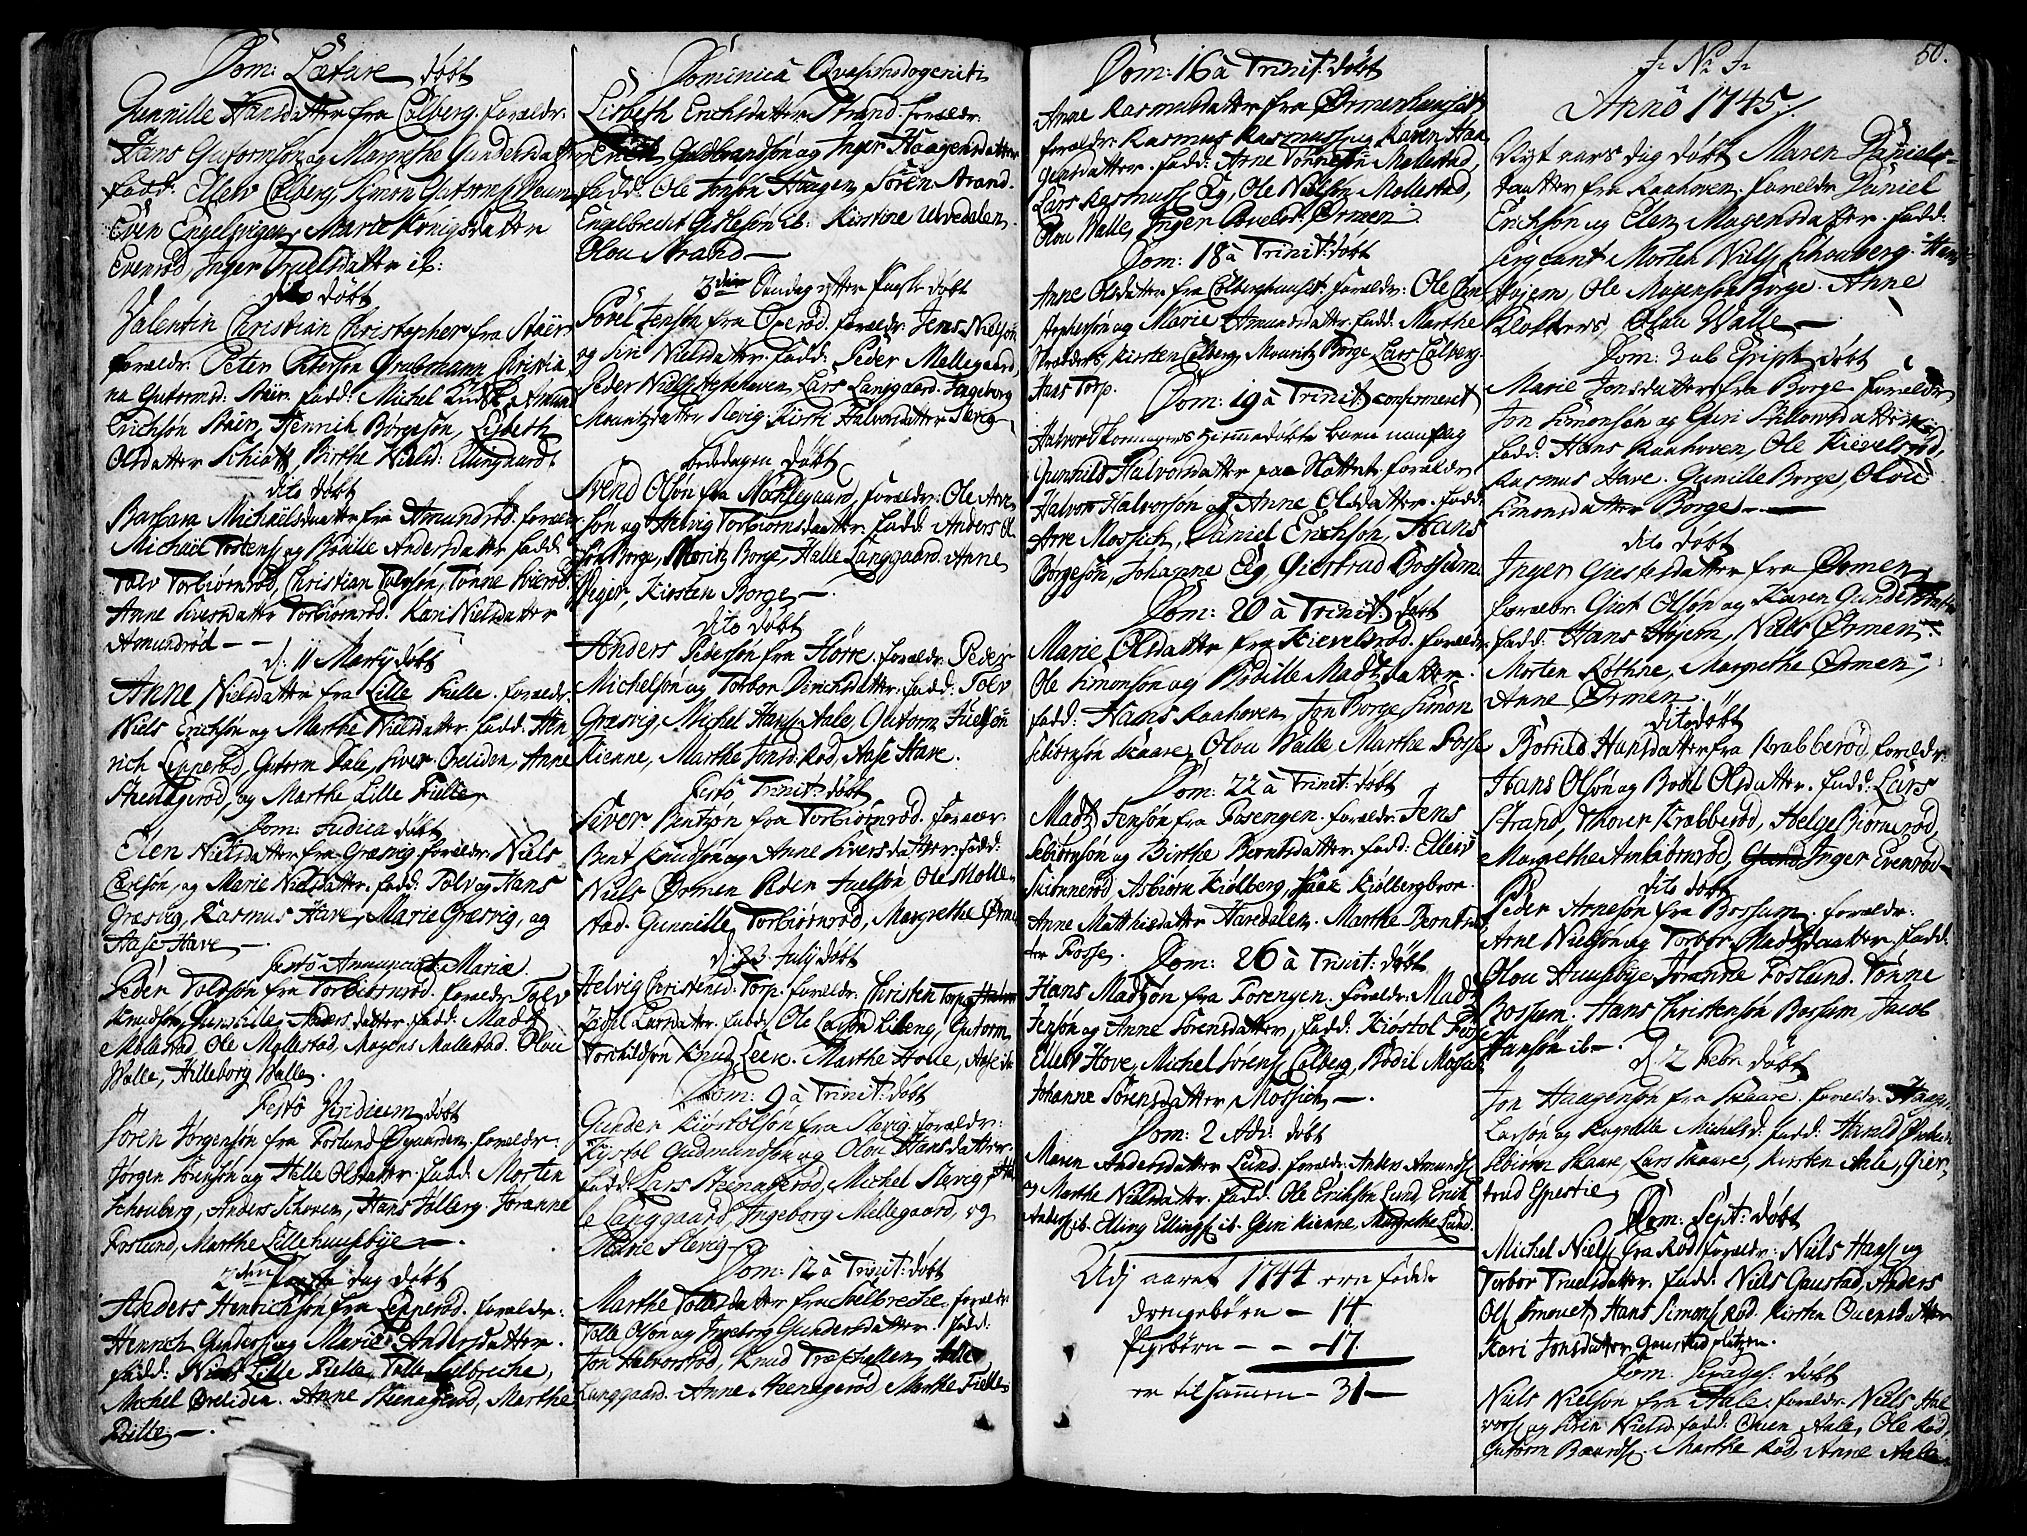 Dom: Lætare døbt
Gunnille Hansdatter fra Colberg. forældr:
Hans Gutormsøn og Margrethe Gundersdatter
fadd: Ellev Colberg, Simon Gutorms
Even Engelsvigen, Marie Kønigsdatter
Evenrød, Inger Truelsdatter ib:
dito døbt
Valentin Christian Christopher fra Stüer
forældr: Peter Peterson Grabmann, Christia-
na Gutormsd: Stüer. fadd: Michel Amund
Erichsøn Stüer, Henrich Børgesøn, Lisbeth
Olsdatter Schiatt, Birthe Nielsd: Ellinggaard
dito døbt
Barbara Michaelsdatter fra Amundrød. forældr
Michael Tostens: og Bodille Andersdatter fadd:
Tolv Torbiørnrød, Christian Tolvsøn, Tønne
Anne Siversdatter Torbiørnrød. Kari Nielsdatter
Amundrød —
d: 11 Martij døbt
Anne Nielsdatter fra Lille Fielle. forældr:
Niels Erichsøn og Marthe Nielsdatter fadd: Hen-
rich Lepperød, Gutorm Dale, Siver Oreliden, Anne
Steenagerød, og Marthe Lille Fielle
Dom: Judica døbt
Elen Nielsdatter fra Græsvig forældr. Niels
Carlsøn, og Marie Nielsdatter. fadd: Tolv og Hans
Græsvig, Rasmus Have, Marie Græsvig, og
Aase Have —.
Festo Annunciat: Mariæ.
Peder Tolvsøn fra Torbiørnrød. forældr. Tolv
Knudsøn, Gunnille Andersdatter. fadd: Madtz
Mollestad Ole Mollestad, Mogens Mollestad. Olou
Walle, Hilleborg Walle.
Festo Viridium døbt
Søren Jørgensøn fra Foslund Øgaarden. forældr:
Jørgen Joensøn og Helle Olsdatter. fadd: Morten
Schouberg, Anders Schoven, Hans Solberg. Joranne
Foslund, Marthe Lille huusbye —.
2den Paaske dag døbt
Anders Henrichsøn fra Lepperød. forældre:
Henrich Gunders: og Marie Andersdatter.
fadd: Niels Lille Fielle, Tolle Sælbreche,
Michel Oreliden. Anne Steenagerød, Marthe
Fielle —.
Dominica Qvasimodogeniti
Lisbeth Erichsdatter Strand. forældr:
Erich Guldbrandsøn og Inger Haagensdatter
fadd: Ole Jonsøn Haagen, Søren Strand.
Engelbrecht Gislesøn ib: Kirstine Ulvedalen.
Olou Strand —
3die Søndag efter Paaske døbt
Povel Jensøn fra Operød. forældr. Jens Nielsøn
og Siri Nielsdatter. fadd: Peder Mellegaard,
Peder Niels: Løchehaven, Lars Langgaard. Ingeborg
Mouritzdatter Slevig. Kirsti Halvorsdatter Slevig —
bededagen døbt
Svend Olsøn fra Nøchlegaard, forældr: Ole Arve-
søn og Helvig Torbiørnsdatter. fadd: Anders Ol-
søn Borge, Moritz Borge, Halle Langgaard. Anne
Vejer, Kirsten Borge —.
dito døbt
Anders Pedersøn fra Hørre. forældr. Peder
Michelsøn og Torbor Derichsdatter. fadd: Tolv
Græsvig, Michel Hans: Aale, Gutorm Juelsøn
Kienne, Marthe Jonsd: Rød, Aase Have.
Festo Trinit: døbt
Siver Bentsøn fra Torbiørnrød. Forær:
Bent Knudsøn og Anne Siversdatter. fadd:
Niels Ørmen Peder Juelsøn Ole Molle-
stad. Gunnille Torbiørnrød, Margrethe Ørmen
d: 23 July døbt
Helvig Christensd: Torp. forældr: Christen Torp
Zidsil Larsdatter. fadd: Ole Larsøn Liberg, Gutorm
Torchildsøn Knud Leek. Marthe Holle, Aase ib
Dom: 9 à Trinit: døbt
Gunder Kiøstolsøn fra Slevig forældre:
Kiøstol Gudmundsøn og Olou Hansdatter.
fadd: Lars Steenagerød, Michel Slevig
Langgaard, Ingeborg Mellegaard, og
Marie Slevig
Dom: 12 à Trinit: døbt
Marthe Tollesdatter fra Sælbreche. forældr
Tolle Olsøn og Ingeborg Gundersdatter. fadd:
Jon Halvorsrød, Knud Træschallen, Halle
Langgaard. Anne Steenagerød, Marthe Fielle
Dom: 16 à Trinit: døbt
Anne Rasmusdatter fra Ørmenhaugsæt
forældr: Rasmus Rasmus: og Karen Haa-
gensdatter. fadd: Arne Tønnesøn Mollestad,
Lars Rasmus: Eg, Ole Nielsøn Mollestad,
Olou Walle, Inger Ørmen
Dom: 18 à Trinit: døbt
Anne Olsdatter fra Colberghauget: forældr: Ole Chri-
stophersøn og Marie Amundsdatter. fadd: Marthe
Kirsten Colberg, Mouritz Borge Lars Colberg.
Hans Torp.
Dom: 19 à Trinit: confirmeret
Halvor hiemmedøbte barn naufnlig
Gunnild Halvorsdatter paa Slottet. forældr
Halvor Halvorsøn og Anne Olsdatter. fadd:
Arve Mossich, Daniel Erichsøn, Hans
Borgesøn, Johanne Eg, Giertrud Bossum.
Dom: 20 à Trinit: døbt
Marie Olsdatter fra Kievelsrød. forældr
Ole Simonsøn og Bodille Madtzdatter.
fadd: Hans Raahoven Jon Borge Simon
Sebiørnsøn Skaare, Olou Walle Marthe Fosse
Dom: 22 à Trinit: døbt
Madtz Jensøn fra Fosengen. forældr: Jens
Sebiørnsøn og Birthe Berntsdatter. fadd: Ellevs
Skiønnerød Asbiørn Kiølberg, Kiølbergbroe.
Anne Matthisdatter Haredalen. Marthe Berntsdat-
ter Fosse.
Dom: 26 à Trinit: døbt
Hans Madtzøn fra Fosengen. forældr: Madtz
Jensøn og Anne Sørensdatter, fadd: Kiøstol Fosse
Ellev Hove, Michel Sørens: Colberg, Bodil
Johanne Sørensdatter, Mossich —.
Dom: 2 Adv: døbt
Maren Andersdatter Lund. forældr. Anders Amunds:
og Marthe Nielsdatter. fadd: Ole Eriksøn Lund, Erik
Anders: ib. Elling Ellings: ib. Guri Kienne, Margrethe Lund.
Udj aaret 1744 ere fødde
drengebørn — 14
Pigebørn — — 17.
er tilsammen — 31 —
50.
J. N. J.
Anno 1745.
Nyt aars dag døbt Maren Daniels-
datter fra Raahoven. forældr Daniel
Erichsøn og Elen Mogensdatter. fadd:
Sergeant Morten Niels: Schouberg. Hans
Hyjem, Ole Mogensøn Borge. Anne
Klokkers, Olou Walle —
Dom: 3 ab Epiph døbt
Marie Jonsdatter fra Borge forældr
Jon Simonsøn og Guri
fadd: Hans Raahoven, Ole Kievelsrød,
Rasmus Have. Gunille Borge, Olou
Simonsdatter Borge —
dito døbt
Inger Giestesdatter fra Ørmen
forældr: Giest Olsøn og Karen Gundersdatter
fadd: Hans Hyjem, Niels Ørmen
Morten Røthne, Margrethe Ørmen,
Anne Ørmen.
dito døbt
Botild Hansdatter fra Krabberød, forældr:
Hans Olsøn og Bodil Olsdatter. fadd: Lars
Strand, Thover Krabberød, Helge Biørnerød,
Margrethe Ambiørnrød, Inger Evenrød
dito døbt
Peder Arnesøn fra Bossum. forældr:
Arne Nielsøn og Torbor Madtzdatter. fadd:
Olou Huusbye Joranne Foslund. Tønne
Bossum. Hans Christensøn Bossum, Jacob
Hansøn ib —.
d: 2 Febr: døbt
Jon Haagensøn fra Skaare. forældr. Haagen
Larsøn og Ragnille Michelsd: fadd: Harald
Sebiørn Skaare, Lars Skaare, Kirsten Aale, Gier-
trud Gjestie,
Dom: Sept: døbt
Michel Niels: fra Rød forældr: Niels Hans: og
Torbor Truelsdatter. fadd: Niels Gaustad, Anders
Ols: Hans Simons: Rød. Kirsten Ovensdatter
Kari Jonsdatter Gaustad pladzen.
Dom: Sexages: døbt
Niels Nielsøn fra Aale. forældr: Niels Hal-
vors: og Siren Nielsd: fadd: Oven Aale, Ole Rød,
Gutorm Baards: Marthe Rød, Anne Aale.